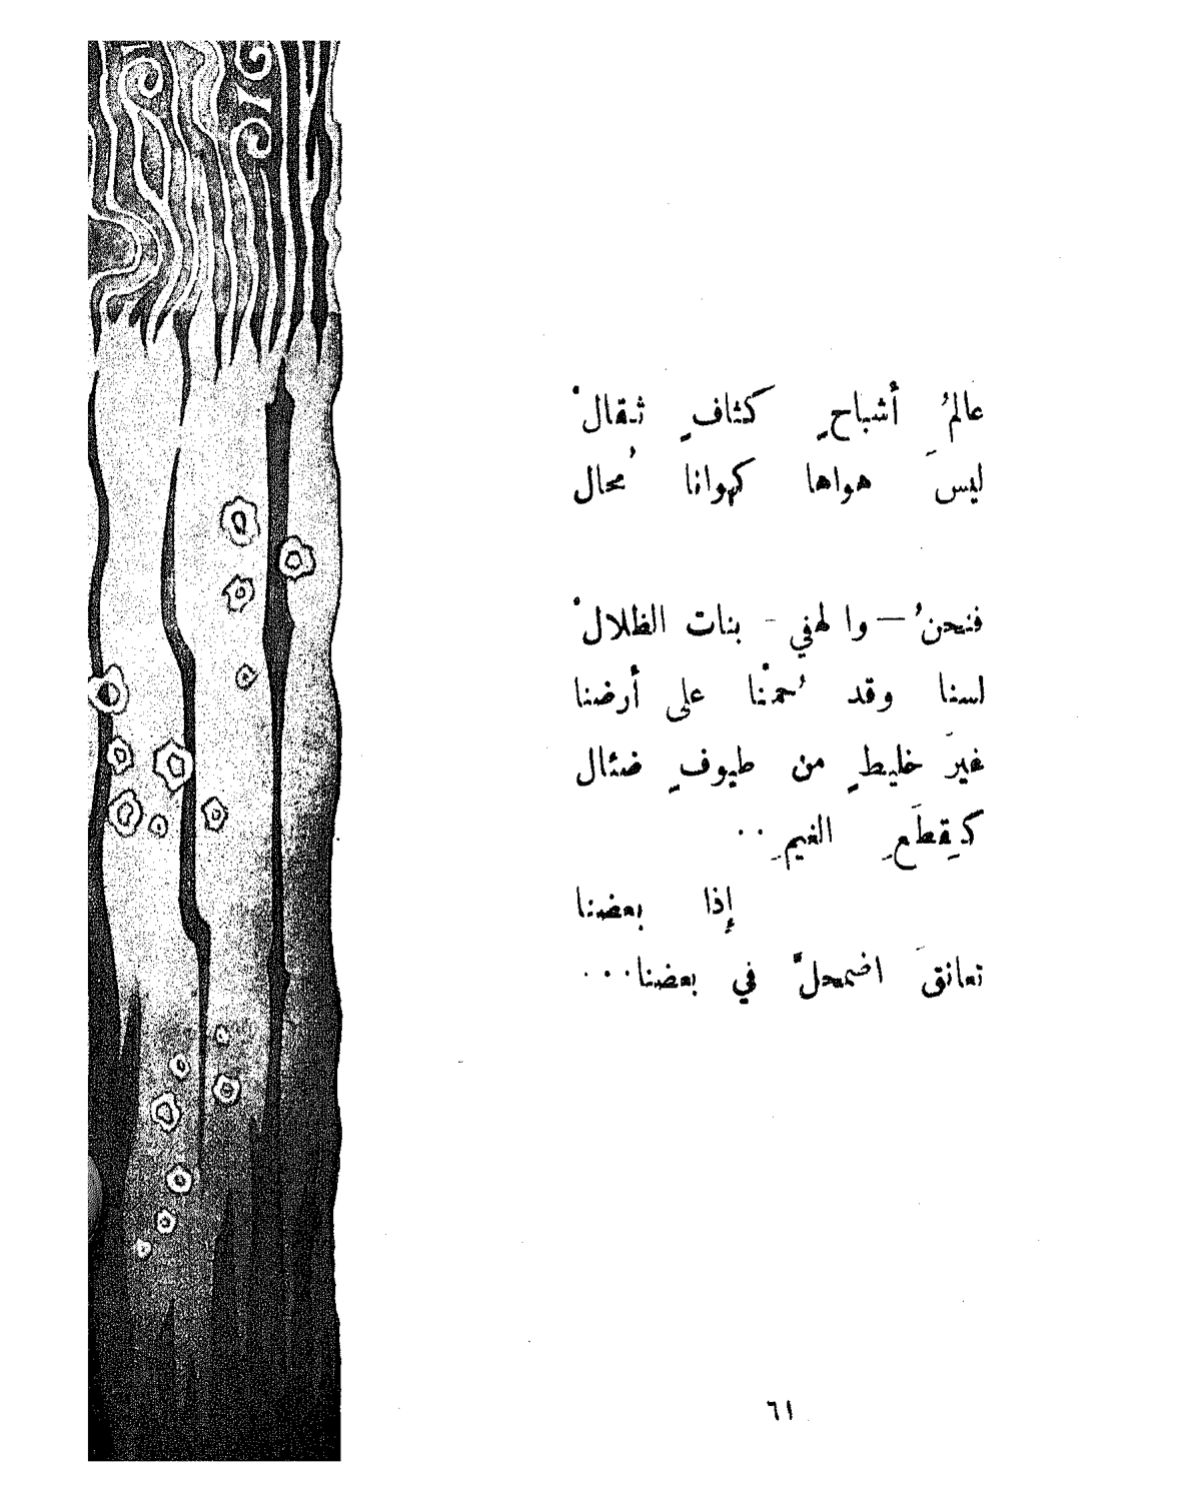 عالمُ أشباحٍ كثافٍ ثقالْ
ليسَ هواها كهوانا مُحال
فنحنُ — وا لهفي - بنات الظلالْ
لسنا وقد حُمْنا على أرضنا
غيرَ خليطٍ من طيوفٍ ضئال
كقِطَعِ الغيمِ ..
إذا بعضنا
تعانقَ اضمحلّ في بعضنا ...
٦١